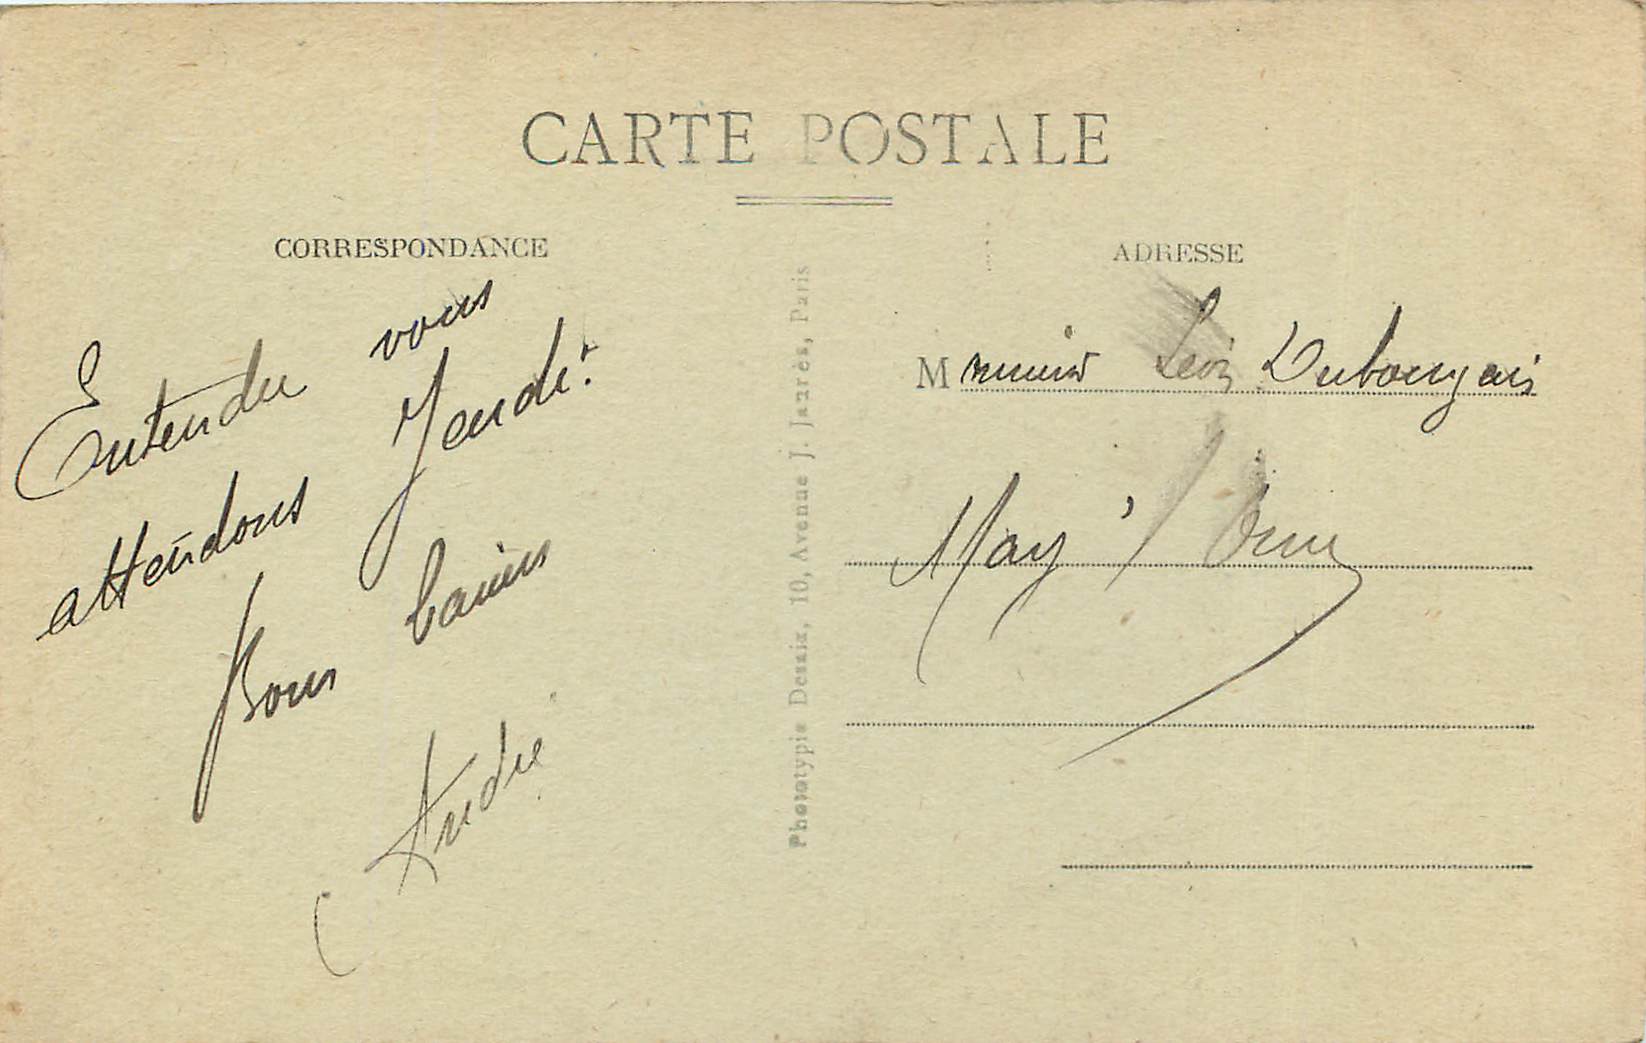 CARTE POSTALE
CORRESPONDANCE
Entendu vous
attendons Jeudi.
Bons baisers
André
Phototypie Desaix, 10, Avenue J. Jaurès, Paris
ADRESSE
Monsieur Léon Dubourgais
May s/ Orne